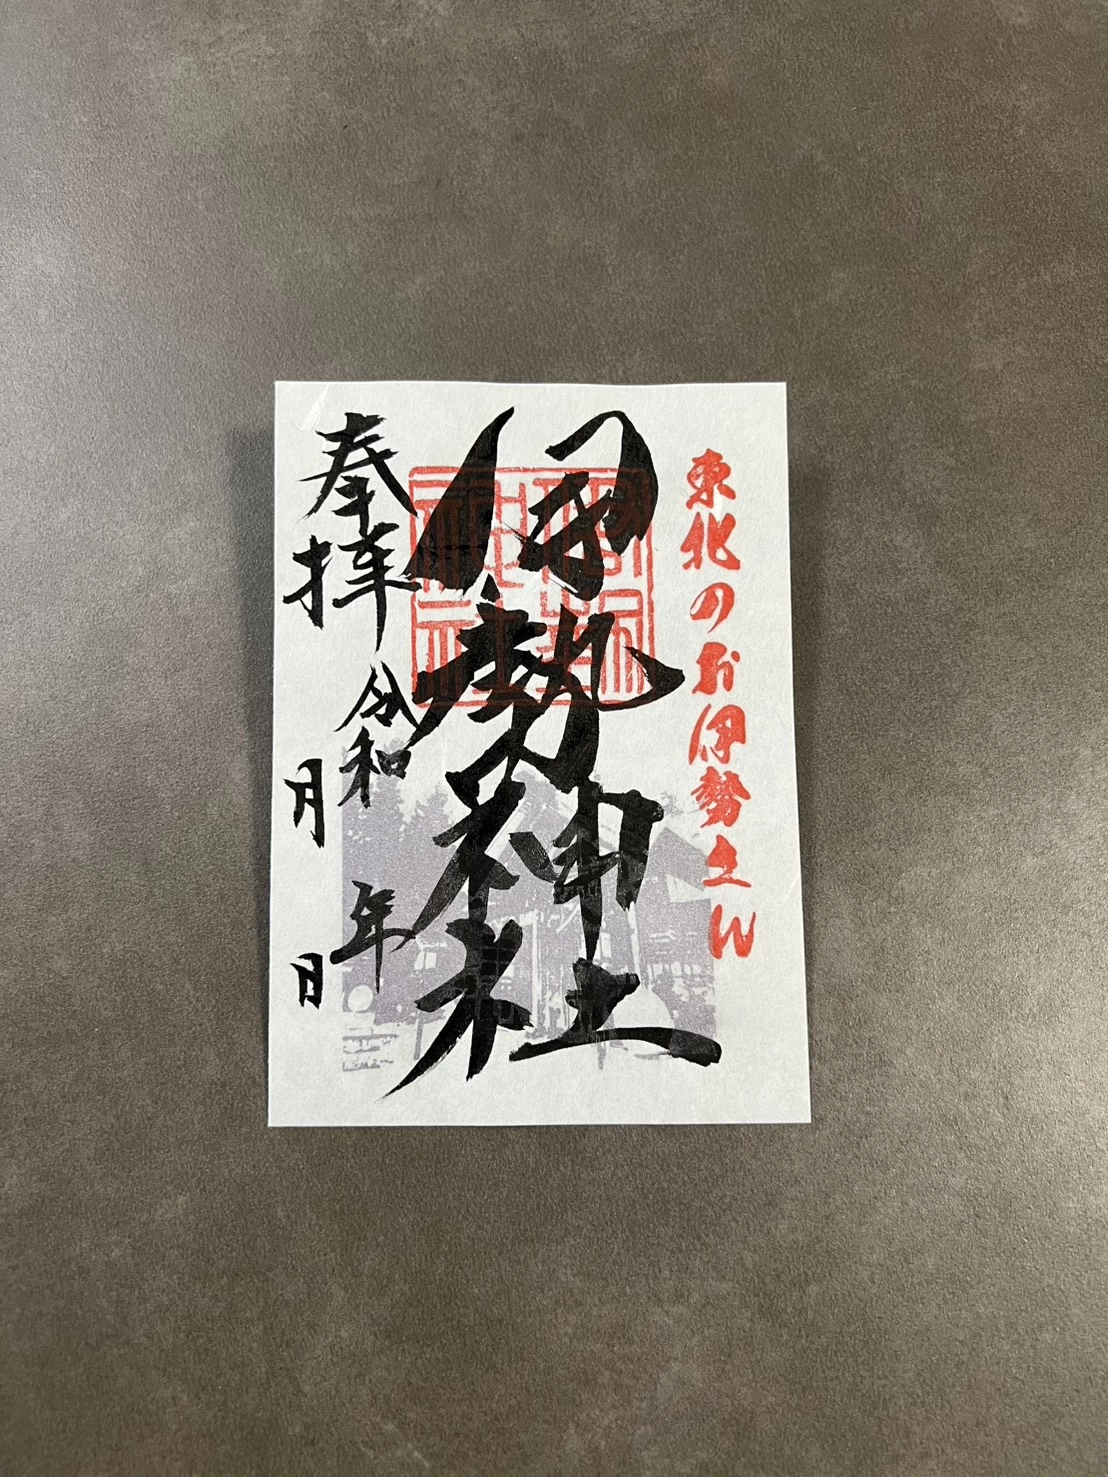 東北のお伊勢さん
伊勢神社
奉拝
令和　年
月　日